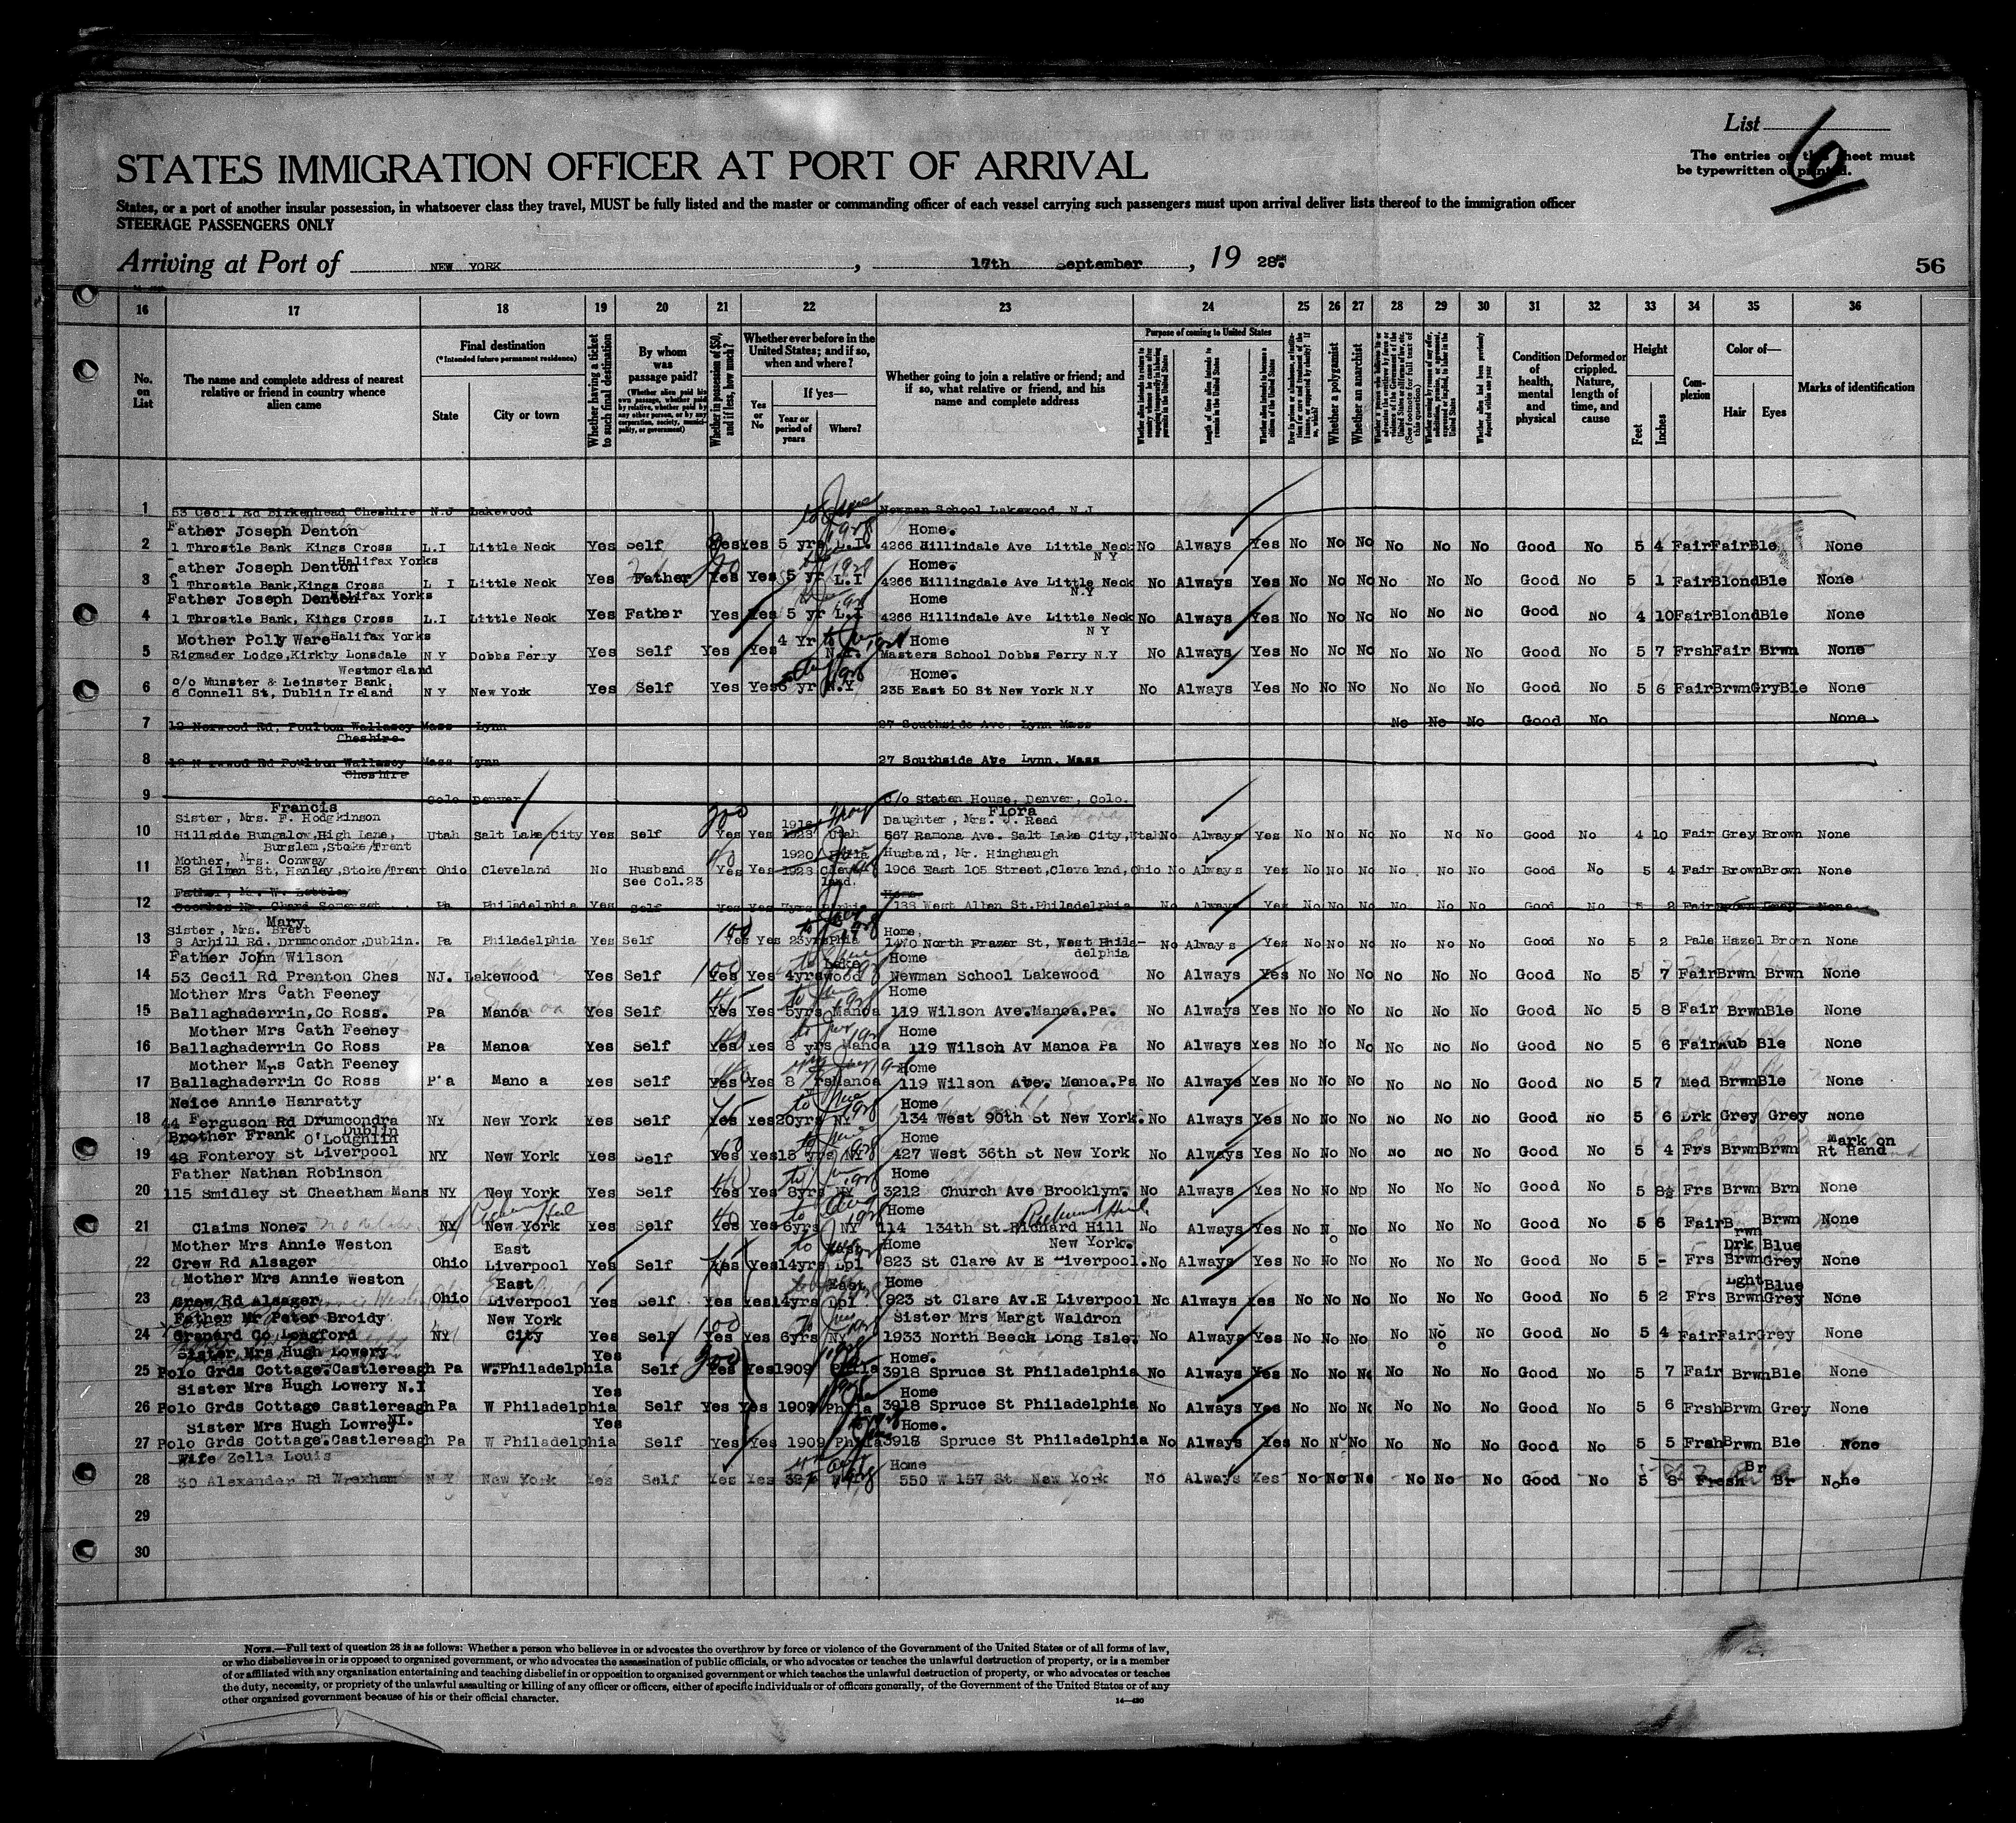 List 6
The entries on this sheet must
be typewritten or printed.
STATES IMMIGRATION OFFICER AT PORT OF ARRIVAL
States, or a port of another insular possession, in whatsoever class they travel, MUST be fully listed and the master or commanding officer of each vessel carrying such passengers must upon arrival deliver lists thereof to the immigration officer
STEERAGE PASSENGERS ONLY
Arriving at Port of NEW YORK, 17th September, 19 28
56
16 17 18 19 20 21 22 23 24 25 26 27 28 29 30 31 32 33 34 35 36
No. on List
The name and complete address of nearest relative or friend in country whence alien came
Final destination
(*Intended future permanent residence)
State
City or town
Whether having a ticket to such final destination
By whom was passage paid?
(Whether alien paid his own passage, whether paid by relative, whether paid by any other person, or by any corporation, society, municipality, or government)
Whether in possession of $50, and if less, how much?
Whether ever before in the United States; and if so, when and where?
Yes or No
If yes—
Year or period of years
Where?
Whether going to join a relative or friend; and if so, what relative or friend, and his name and complete address
Purpose of coming to United States
Length of time alien intends to remain in the United States
Whether alien intends to become a citizen of the United States
Whether a polygamist
Whether an anarchist
Condition of health, mental and physical
Deformed or crippled. Nature, length of time, and cause
Height
Feet
Inches
Complexion
Color of—
Hair
Eyes
Marks of identification
1 53 Cecil Rd Birkenhead Cheshire N.J Lakewood Newman School Lakewood N.J
Father Joseph Denton Home.
2 1 Throstle Bank Kings Cross L.I Little Neck Yes Self Yes Yes 5 yrs L.I. 4266 Hillindale Ave Little Neck No Always Yes No No No No No No Good No 5 4 Fair Fair Ble None
Halifax Yorks N Y
Father Joseph Denton Home.
3 1 Throstle Bank, Kings Cross L I Little Neck Yes Father Yes Yes 5 yr L.I 4266 Hillingdale Ave Little Neck No Always Yes No No No No No No Good No 5 1 Fair Blond Ble None
Halifax Yorks N.Y
Father Joseph Denton Home
4 1 Throstle Bank, Kings Cross L.I Little Neck Yes Father Yes Yes 5 yr L.I 4266 Hillindale Ave Little Neck No Always Yes No No No No No No Good No 4 10 Fair Blond Ble None
Halifax Yorks N Y
Mother Polly Ware 4 Yr Home
5 Rigmader Lodge, Kirkby Lonsdale N Y Dobbs Ferry Yes Self Yes Yes N.Y. Masters School Dobbs Ferry N.Y No Always Yes No No No No No No Good No 5 7 Frsh Fair Brwn None
Westmoreland
c/o Munster & Leinster Bank, Home.
6 6 Connell St, Dublin Ireland N Y New York Yes Self Yes Yes yr N.Y 235 East 50 St New York N.Y No Always Yes No No No No No No Good No 5 6 Fair Brwn GryBle None
7 12 Norwood Rd, Poulton Wallasey Mass Lynn 27 Southside Ave, Lynn Mass No No No Good No None
Cheshire.
8 12 N rwood Rd Poulton Wallasey Mass Lynn 27 Southside Ave Lynn. Mass
Cheshire
9 Colo Denver c/o Staten House, Denver, Colo.
Francis Flora
Sister, Mrs. F. Hodgkinson 1916 Daughter, Mrs. J. Read
10 Hillside Bungalow, High Lane, Utah Salt Lake City Yes Self 200 Yes Yes 1923 Utah 667 Ramona Ave. Salt Lake City, Utah No Always Yes No No No No No No Good No 4 10 Fair Grey Brown None
Burslem, Stoke/Trent
Mother, Mrs. Conway 1920 Phila Husband, Mr. Hinghaugh
11 52 Gilman St, Hanley, Stoke/Trent Ohio Cleveland No Husband Yes Yes 1928 Cleveland. 1906 East 105 Street, Cleveland, Ohio No Always Yes No No No No No No Good No 5 4 Fair Brown Brown None
See Col.23
Father, Mr. W. Home
12 Chard Somerset Pa Philadelphia Yes Self Yes Yes 138 West Allen St. Philadelphia No Always Yes No No No No No No Good No 5 2 Fair Brown Grey None
Mary
Sister, Mrs. Brett Home,
13 8 Arhill Rd. Drumcondor, Dublin. Pa Philadelphia Yes Self 100 Yes Yes 23yrs Phia 1470 North Frazer St, West Philadelphia No Always Yes No No No No No No Good No 5 2 Pale Hazel Brown None
Father John Wilson Home
14 53 Cecil Rd Prenton Ches NJ. Lakewood Yes Self 100 Yes Yes 4yrs Lakewood Newman School Lakewood No Always Yes No No No No No No Good No 5 7 Fair Brwn Brwn None
Mother Mrs Cath Feeney Home
15 Ballaghaderrin, Co Ross. Pa Manoa Yes Self 45 Yes Yes 5yrs Manoa 119 Wilson Ave. Manoa. Pa. No Always Yes No No No No No No Good No 5 8 Fair Brwn Ble None
Mother Mrs Cath Feeney Home
16 Ballaghaderrin Co Ross Pa Manoa Yes Self 40 Yes Yes 8 yrs Manoa 119 Wilson Av Manoa Pa No Always Yes No No No No No No Good No 5 6 Fair Aub Ble None
Mother Mrs Cath Feeney Home
17 Ballaghaderrin Co Ross P'a Mano a Yes Self 40 Yes Yes 8 yrs Manoa 119 Wilson Ave. Manoa. Pa No Always Yes No No No No No No Good No 5 7 Med Brwn Ble None
Neice Annie Hanratty Home
18 44 Ferguson Rd Drumcondra NY New York Yes Self 45 Yes Yes 20yrs NY 134 West 90th St New York. No Always Yes No No No No No No Good No 5 6 Drk Grey Grey None
Dublin
Brother Frank O'Loughlin Home mark on
19 48 Fonteroy St Liverpool NY New York Yes Self Yes Yes 15 yrs NY 427 West 36th St New York No Always Yes No No No No No No Good No 5 4 Frs Brwn Brwn Rt Hand
Father Nathan Robinson Home
20 115 Smidley St Cheetham Mans NY New York Yes Self 40 Yes Yes 8yrs NY 3212 Church Ave Brooklyn. No Always Yes No No No No No No Good No 5 8½ Frs Brwn Brn None
Richmond Hill Home Richmond Hill
21 Claims None. NY New York Yes Self 40 Yes Yes 6yrs NY 114 134th St. Richard Hill No Always Yes No No No No No Good No 5 6 Fair Brwn Brwn None
New York.
Mother Mrs Annie Weston East Home Drk Blue
22 Crew Rd Alsager Ohio Liverpool Yes Self 45 Yes Yes 14yrs East Lpl 823 St Clare Av E Liverpool. No Always Yes No No No No No No Good No 5 - Frs Brwn Grey None
Mother Mrs Annie Weston East Home Lght Blue
23 Crew Rd Alsager Ohio Liverpool Yes Self Yes Yes 14yrs East Lpl 823 St Clare Av. E Liverpool No Always Yes No No No No No No Good No 5 2 Frs Brwn Grey None
Father Mr Peter Broidy New York Sister Mrs Margt Waldron
24 Granard Co Longford NY City Yes Self 100 Yes Yes 6yrs NY 1933 North Beech Long Isle. No Always Yes No No No No No No Good No 5 4 Fair Fair Grey None
Sister Mrs Hugh Lowery Yes Home.
25 Polo Grds Cottage. Castlereagh Pa W.Philadelphia Self 200 Yes Yes 1909 Phila 3918 Spruce St Philadelphia No Always Yes No No No No No No Good No 5 7 Fair Brwn Ble None
Sister Mrs Hugh Lowery N.I Yes Home
26 Polo Grds Cottage Castlereagh Pa W Philadelphia Self Yes Yes 1909 Phila 3918 Spruce St Philadelphia No Always Yes No No No No No No Good No 5 6 Frsh Brwn Grey None
Sister Mrs Hugh Lowrey NI. Yes Home.
27 Polo Grds Cottage. Castlereagh Pa W Philadelphia Self Yes Yes 1909 Phila 3918 Spruce St Philadelphia No Always Yes No No No No No No Good No 5 5 Frsh Brwn Ble None
Wife Zella Louis Home
28 30 Alexander Rd Wrexham N Y New York Yes Self Yes Yes 550 W 157 St New York No Always Yes No No No No No No Good No 5 8 Fresh Br Br None
29
30
NOTE.—Full text of question 28 is as follows: Whether a person who believes in or advocates the overthrow by force or violence of the Government of the United States or of all forms of law,
or who disbelieves in or is opposed to organized government, or who advocates the assassination of public officials, or who advocates or teaches the unlawful destruction of property, or is a member
of or affiliated with any organization entertaining and teaching disbelief in or opposition to organized government or which teaches the unlawful destruction of property, or who advocates or teaches
the duty, necessity, or propriety of the unlawful assaulting or killing of any officer or officers, either of specific individuals or of officers generally, of the Government of the United States or of any
other organized government because of his or their official character.
14—480